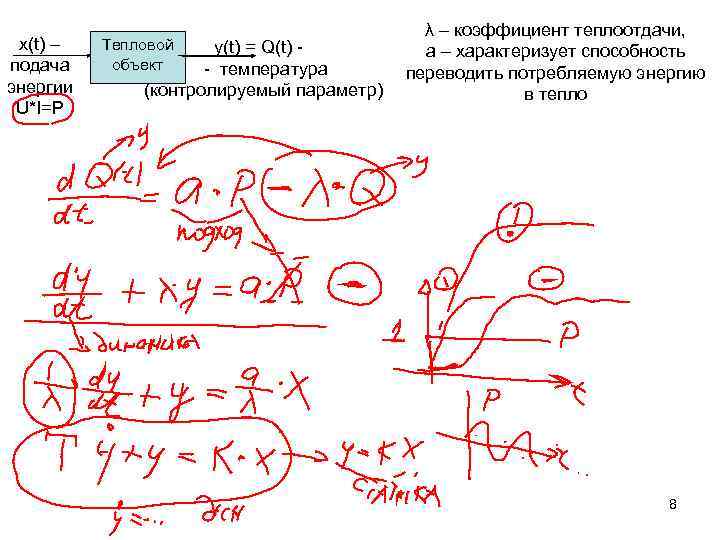 x(t) –
подача
энергии
U*I=P
Тепловой
объект
y(t) = Q(t) -
- температура
(контролируемый параметр)
λ – коэффициент теплоотдачи,
a – характеризует способность
переводить потребляемую энергию
в тепло
y
dQ(t)/dt = a·P - λ·Q
y
подход
dy/dt + λ·y = a·P
динамика
1/λ dy/dt + y = a/λ · X
T ẏ + y = K·x → y = KX
статика
ẏ = ...
1
P
P
8